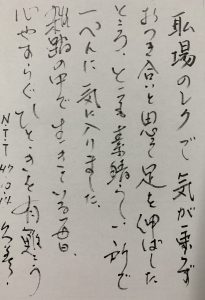 職場のレクで気が重ず
おつき合いと思って足を伸ばした
ところ、とても素晴らしい所で
一ぺんに気に入りました。
雑踏の中で生きている毎日、
心やすらぐひとときを有難う
NTT 47.10.14